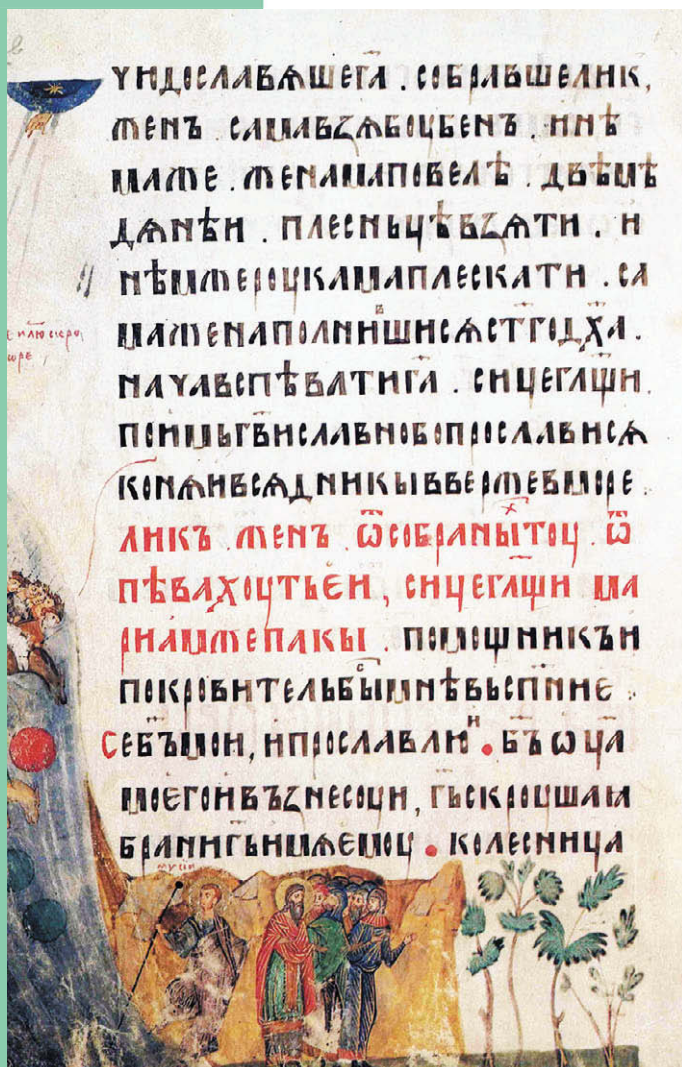 ꙋндославѧшега . собравшелик,
женъ самавзѧбоубенъ . инѣ
маже . женамаповелѣ . двѣмѣ
дѧнѣи . плесньцѣвзѧти . и
нѣмжероукамаплескати . са
маженаполнившисѧстгодх҃а .
начавспѣватига . сицегл҃щи .
поимъгв҃иславнобопрослависѧ
конѧивсѧдникыввержевморе .
ликъ . женъ . ѿсобраны̾хтоу . ѿ
пѣвахоутьеи , сицегл҃щи ма
риамжепакы . помощникъи
покровительбы́с҃мнѣвъсп҃ние .
себ҃ъмои , ипрославлюи • бъ҃ѡц҃а
моегоивъзнесоуи , гь҃скроушаꙗ
браниг҃ьимѧемоу • колесница
мѡѵсіи